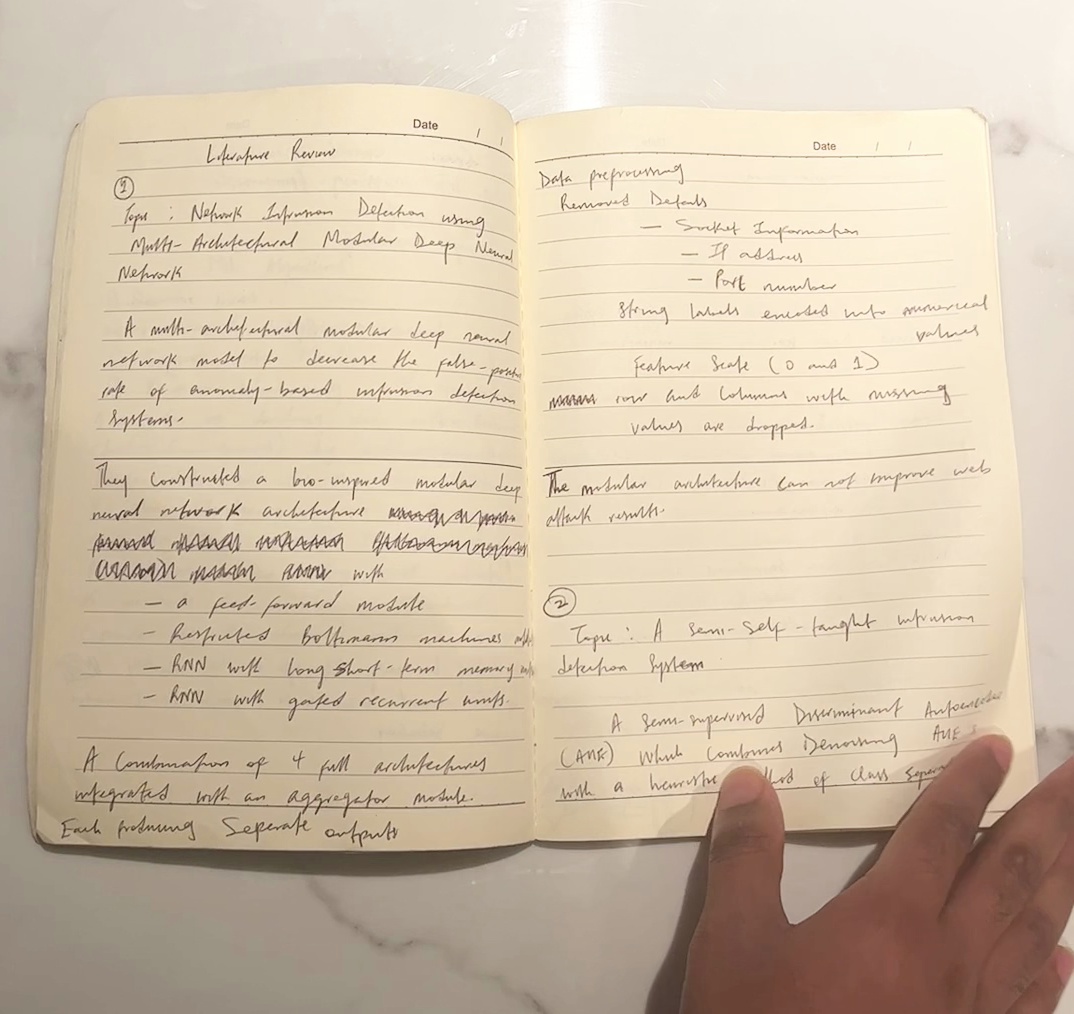 Date / /
Literature Review
1
Topic : Network Intrusion Detection using
Multi-Architectural Modular Deep Neural
Network
A multi-architectural modular deep neural
network model to decrease the false-positive
rate of anomaly-based intrusion detection
systems.
They constructed a bio-inspired modular deep
neural network architecture
with
- a feed-forward module
- Restricted Boltzmann machines
- RNN with long short-term memory
- RNN with gated recurrent units.
A Combination of 4 full architectures
integrated with an aggregator module.
Each producing Seperate outputs
Date / /
Data preprocessing
Removed Details
- Socket Information
- IP address
- Port number
String labels encoded into numerical
values
Feature Scale (0 and 1)
row and Columns with missing
values are dropped.
The modular architecture can not improve web
attack results.
2
Topic : A Semi-Self-taught intrusion
detection System
A Semi-supervised Discriminant Autoencoder
Which Combines Denoising
with a heuristic of Class